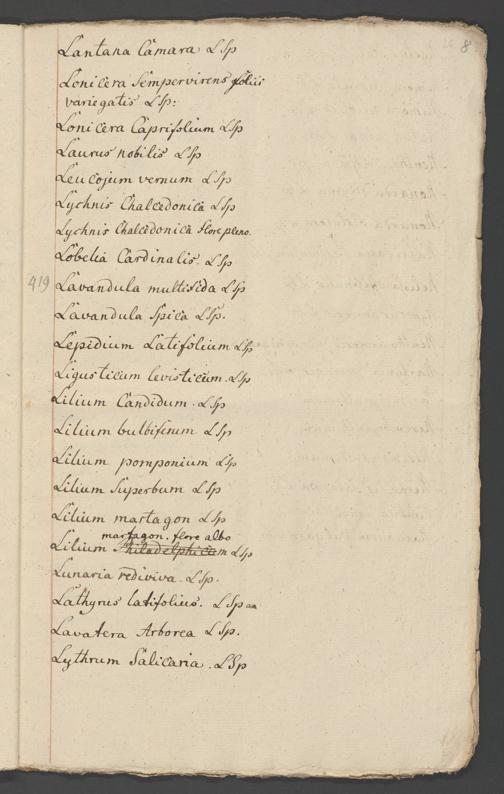 8
Lantana Camara LSp
Lonicera Sempervirens foliis
variegatis LSp:
Lonicera Caprifolium LSp
Laurus nobilis LSp
Leucojum vernum LSp
Lychnis Chalcedonica LSp
Lychnis Chalcedonica flore pleno.
Lobelia Cardinalis. LSp
419 Lavandula multifida LSp
Lavandula Spica LSp.
Lepidium Latifolium LSp
Ligusticum levisticum. LSp
Lilium Candidum. LSp
Lilium bulbiferum LSp
Lilium pomponium LSp
Lilium Superbum LSp
Lilium martagon LSp
martagon. flore albo
Lilium Philadelphicum LSp
Lunaria rediviva. LSp.
Lathyrus latifolius. LSp
Lavatera Arborea LSp.
Lythrum Salicaria. LSp